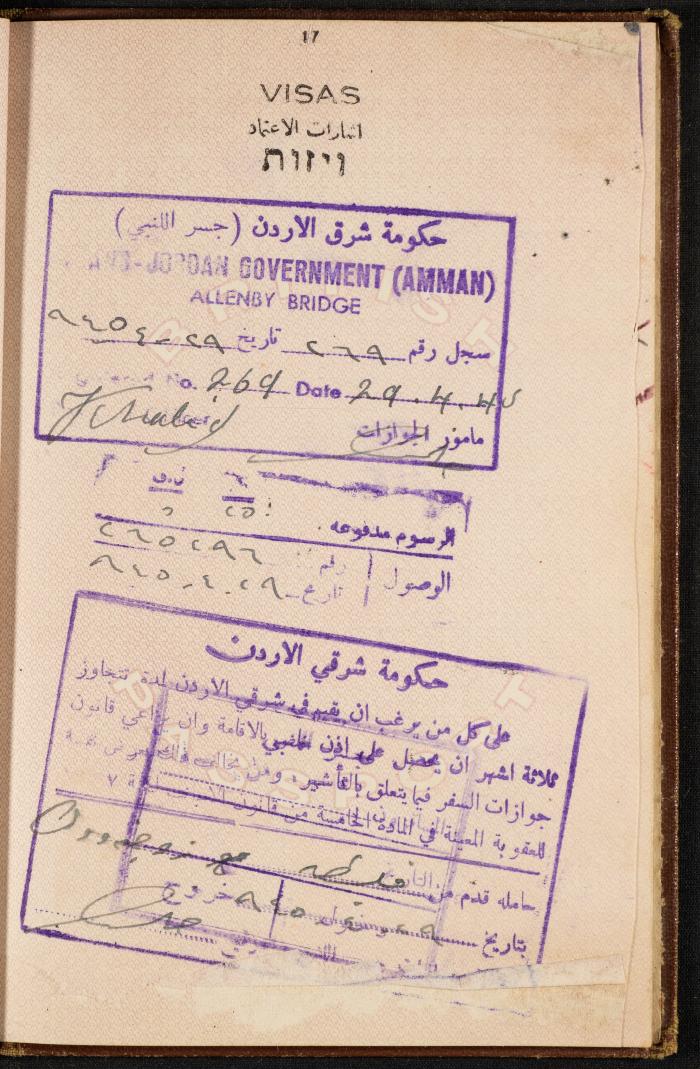 17
VISAS
اشارات الاعتماد
ויזות
حكومة شرق الاردن (جسر اللنبي)
JORDAN GOVERNMENT (AMMAN)
ALLENBY BRIDGE
سجل رقم ٢٦٩ تاريخ ٢٩-٤-٩٤٥
No. 269 Date 29.4.45
مامور الجوازات
الرسوم مدفوعه
الوصول رقم ٢٦٥٢٩٦
تاريخ ٢٩.٤.٩٤٥
حكومة شرقي الاردن
على كل من يرغب ان يقيم في شرقي الاردن لمدة تتجاوز
ثلاثة اشهر ان يحصل على اذن بالاقامة وان يراعي قانون
جوازات السفر فيما يتعلق بالتأشير ومن يخالف ذلك
للعقوبة المعينة في المادة الخامسة من قانون ٧
حامله قدم من مع زوجه
بتاريخ ٢٩.٤.٩٤٥
خروج